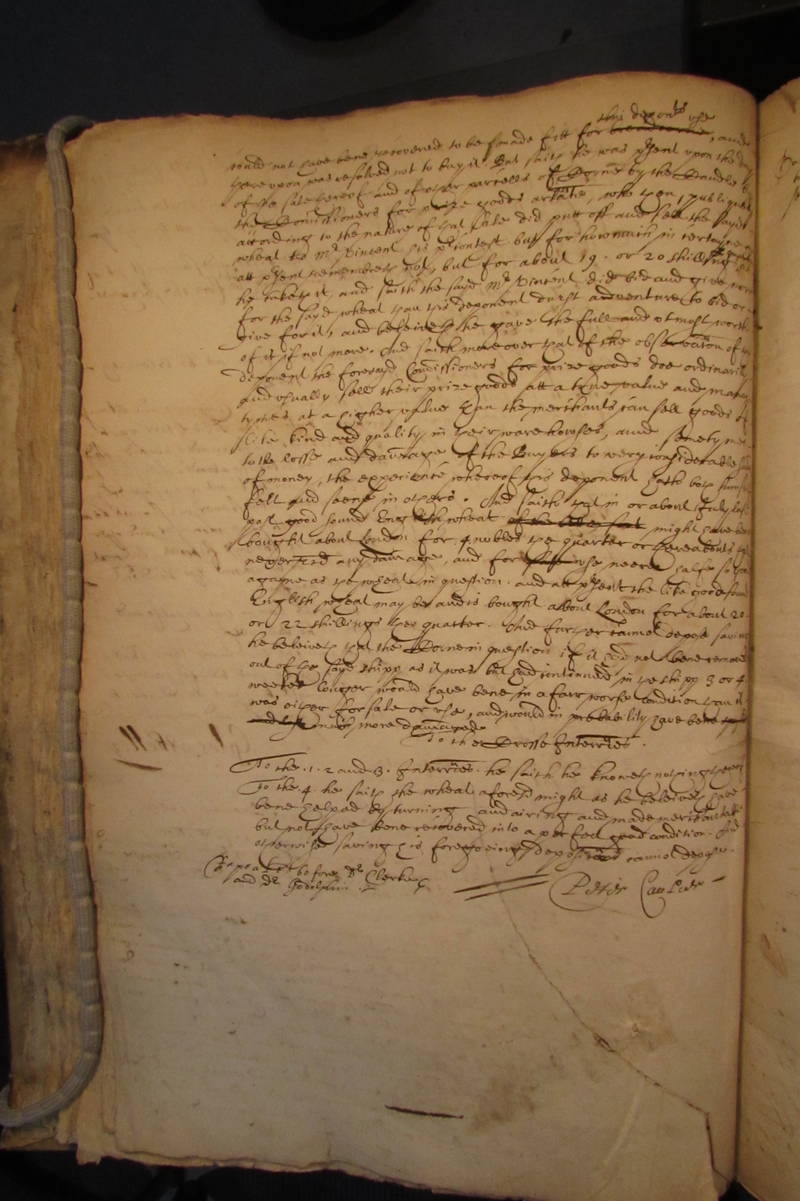 this deponts use
could not have bene recovered to be made fitt for , and
thereupon was resolved not to buy it. But saith he was present upon the
of the sale thereof and of other parcells of Corne by the Candle by
the Commissioners for prize goods articulate, who then, publiquely
according to the nature of that sale did putt off and sell the sayd
wheat to Mr Vincent his producent but for how much in certaine
att present remembreth not, but for about 19. or 20 shillings
he taketh it, and saith the sayd Mr Vincent did bid and give more
for the sayd wheat than this deponent durst adventure to bid or
give for it, and beleiveth he gave the full and utmost worth
of it if not more. And saith moreover that of the observation of this
deponent the foresayd Commissioners for prize goods doe ordinarily
and usually sell their prize goods att a true value and many
tymes at a higher value than the merchants can sell goods of
like kind and quality in their warehowses, and sometymes
to the losse and damage of the buyers to very considerable
of money, the experience whereof this deponent hath both himselfe
felt and seene in others. And saith that in or about July last
past good sound English wheat might have bene
bought about London for 4 nobles the quarter or thereabouts
never had any damage, and for use neere halfe so good
againe as the wheate in question. and at present the like good sound
English wheat may be and is bought about London for about 20.
or 22 shillings per quarter. And further cannot depose saving
he beleiveth that the Corne in question if it had not bene removed
out of the sayd shipp as it was but had continued in the shipp 3 or 4
weekes longer would have bene in a farr worse condition than it
was either for sale or use, and would in probability have bene
much more damaged.
To the Crosse Interries.
To the. 1. 2 and 3. Interries. he saith he knoweth nothing thereof
To the 4 he saith the wheat aforesd might as he beleiveth have
bene helped by turning and airing and made merchantable
but not have bene recovered into a perfect good condition. And
otherwise saving his foregoeing deposition cannot depose.
Repeated before Dr Clerke
and Dr Godolphin.
Peter Causier